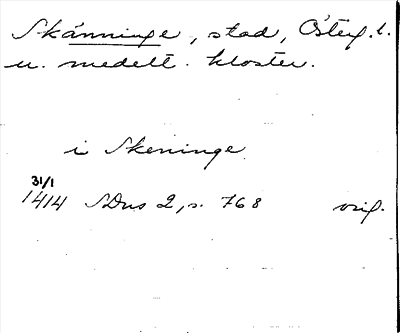 Skänninge, stad, Österg. l.
u. medelt. kloster.
i Skeninge
31/1
1414 SDns 2, s. 768 orig.